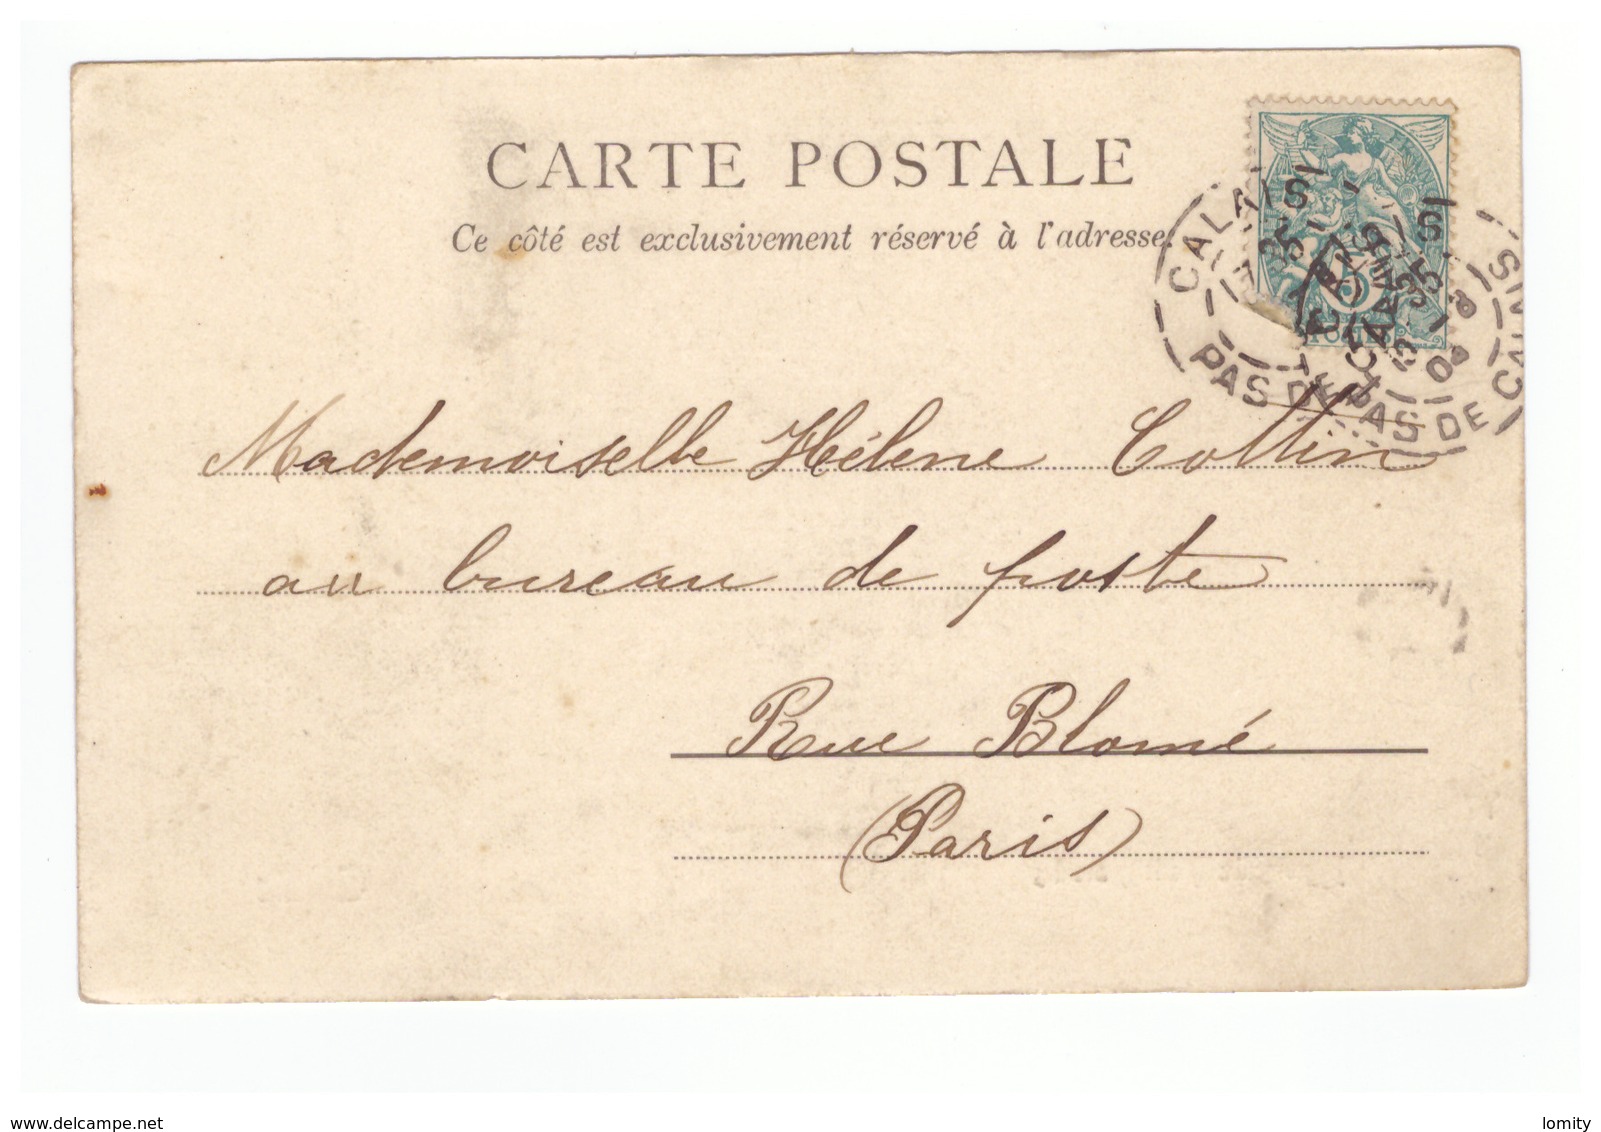 CARTE POSTALE
Ce côté est exclusivement réservé à l'adresse.
CALAIS
PAS DE
CALAIS
PAS DE C
5
Mademoiselle Hélène Collin
au bureau de poste
Rue Blomé
(Paris)
www.delcampe.net
lomity